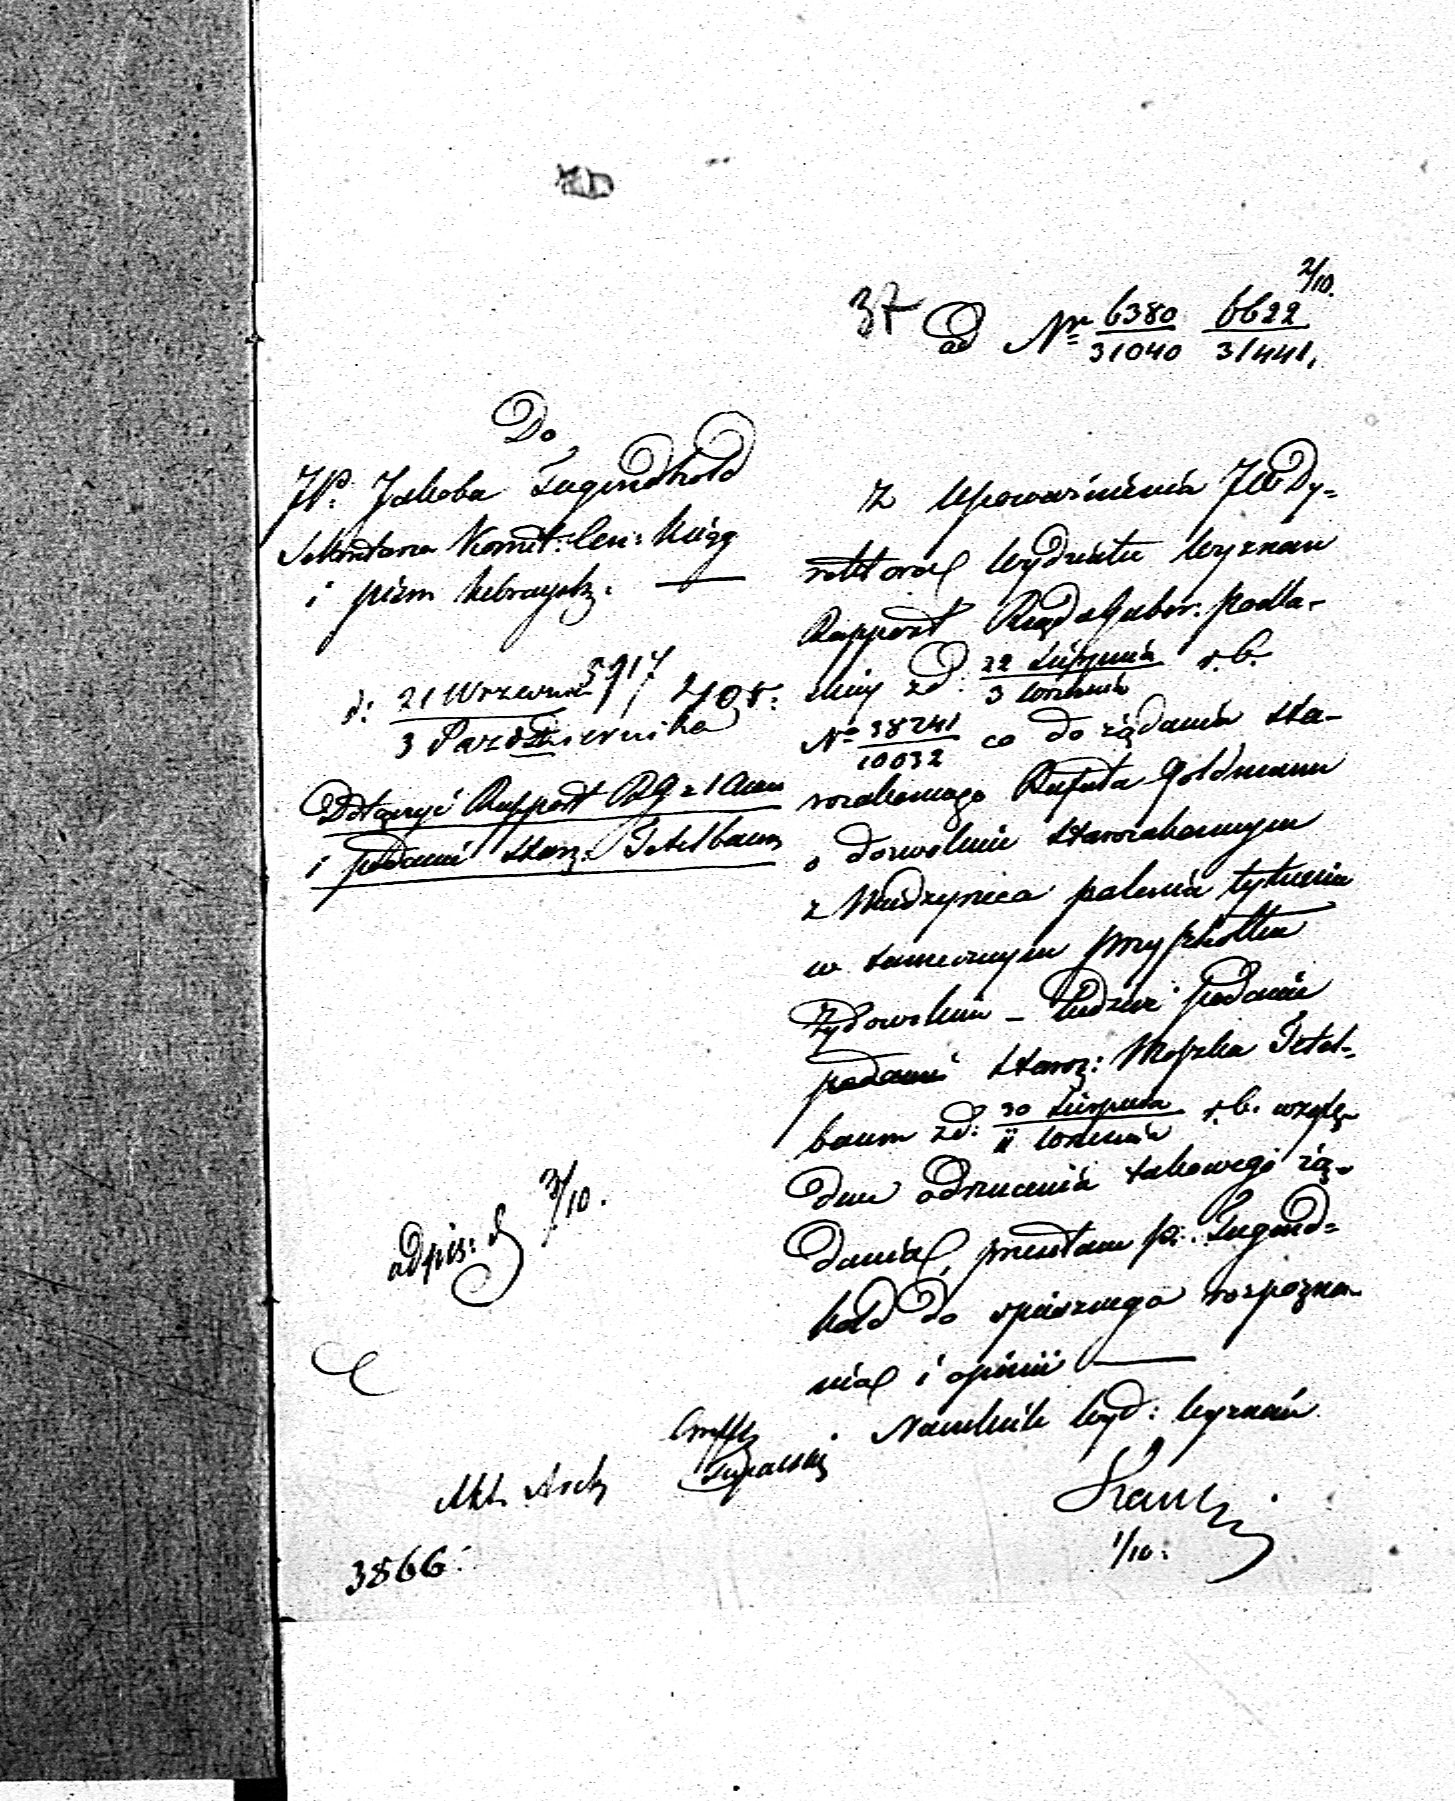 2/10.
37 ad Nr 6380/31040 6622/31441.
Do
JP. Jakoba Tugendhold
Sekretarza Komit: Cen: Książ
i pism hebrajsk.
d: 21 Września / 3 Października 5917
Dołączyć Rapport RG z 1 Ann
i podanie staroz: Tetelbaum
Z upoważnienia JW Dy-
rektora Wydziału Wyznań
Rapport Rządu Guber: Podla-
skiej z d. 22 Sierpnia / 3 Września r.b.
No 38241/10032 co do żądania sta-
rozakonnego Rafała Goldmann
o dozwolenie starozakonnym
z Międzyrzeca palenia tytuniu
w tamecznym przyszkółku
Żydowskim – tudzież podanie
podanie staroz: Moszka Tetel-
baum z d: 30 Sierpnia / 11 Września r.b. wzglę-
dem odrzucenia takowego żą-
dania, przesłam p. Tugend-
hold do spiesznego rozpozna-
nia i opinii
Naczelnik Wyd: Wyznań
1/10.
odpis: d 3/10.
3866.